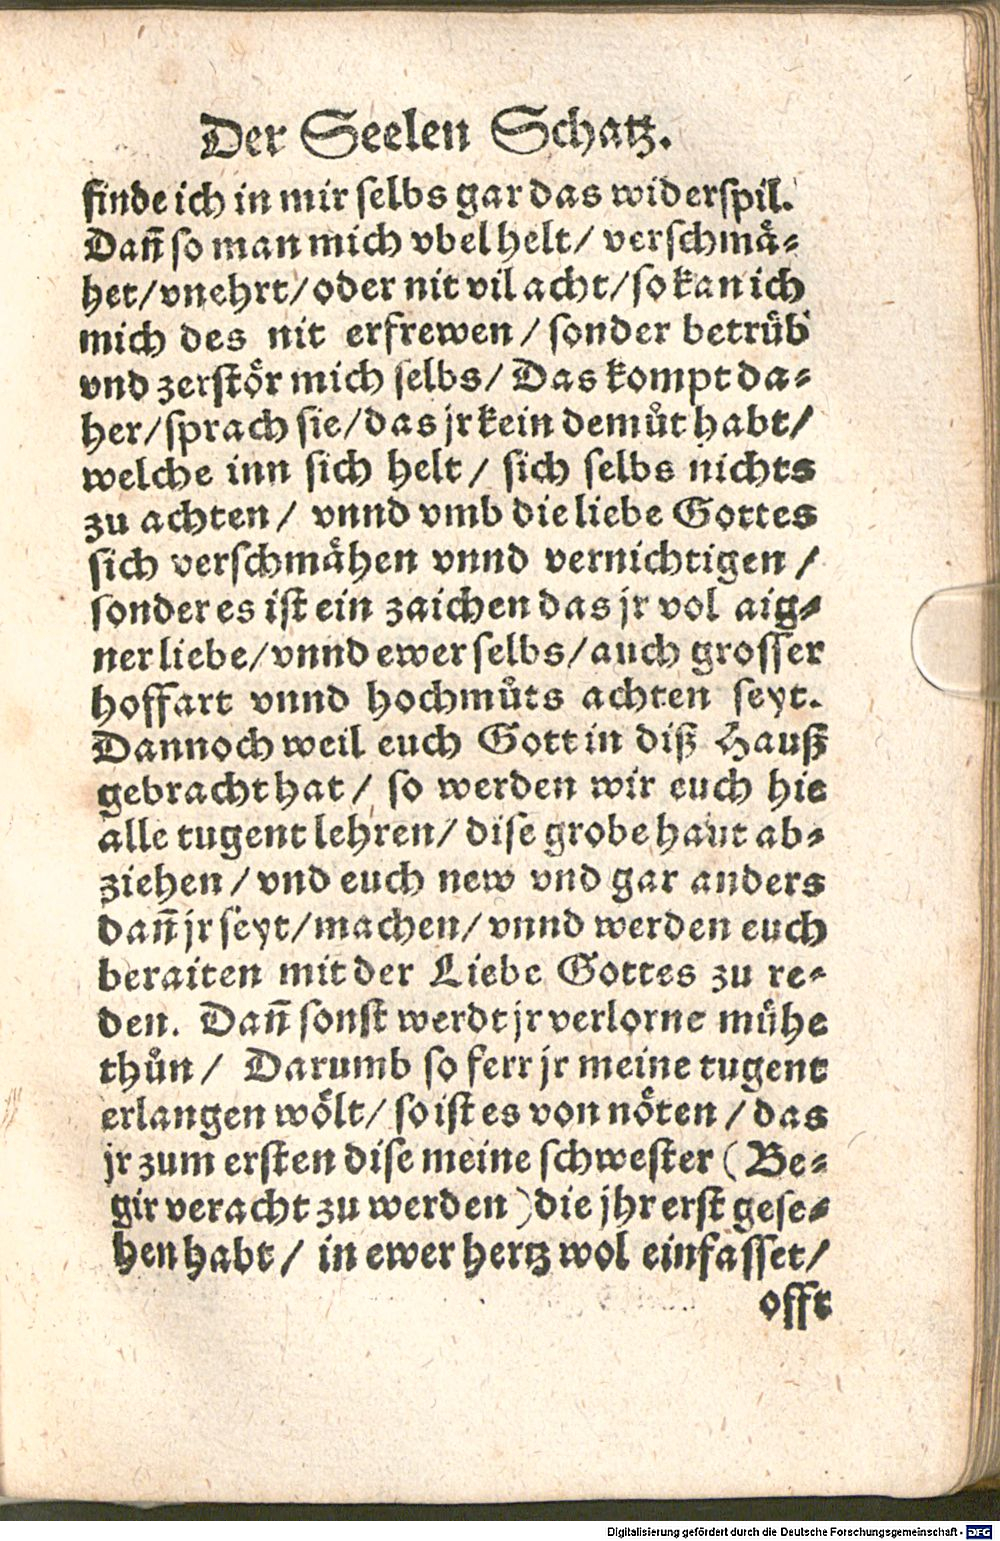 Der Seelen Schatz.
finde ich in mir selbs gar das widerspil.
Dañ so man mich vbel helt/ verschmaͤ-
het/ vnehrt/ oder nit vil acht/ so kan ich
mich des nit erfrewen/ sonder betruͤb
vnd zerstoͤr mich selbs/ Das kompt da-
her/ sprach sie/ das jr kein demuͦt habt/
welche inn sich helt/ sich selbs nichts
zu achten/ vnnd vmb die liebe Gottes
sich verschmaͤhen vnnd vernichtigen/
sonder es ist ein zaichen das jr vol aig-
ner liebe/ vnnd ewer selbs/ auch grosser
hoffart vnnd hochmuͦts achten seyt.
Dannoch weil euch Gott in diß Hauß
gebracht hat/ so werden wir euch hie
alle tugent lehren/ dise grobe haut ab-
ziehen/ vnd euch new vnd gar anders
dañ jr seyt/ machen/ vnnd werden euch
beraiten mit der Liebe Gottes zu re-
den. Dañ sonst werdt jr verlorne muͤhe
thuͦn/ Darumb so ferr jr meine tugent
erlangen woͤlt/ so ist es von noͤten/ das
jr zum ersten dise meine schwester (Be-
gir veracht zu werden) die jhr erst gese-
hen habt/ in ewer hertz wol einfasset/
offt
Digitalisierung gefördert durch die Deutsche Forschungsgemeinschaft - DFG